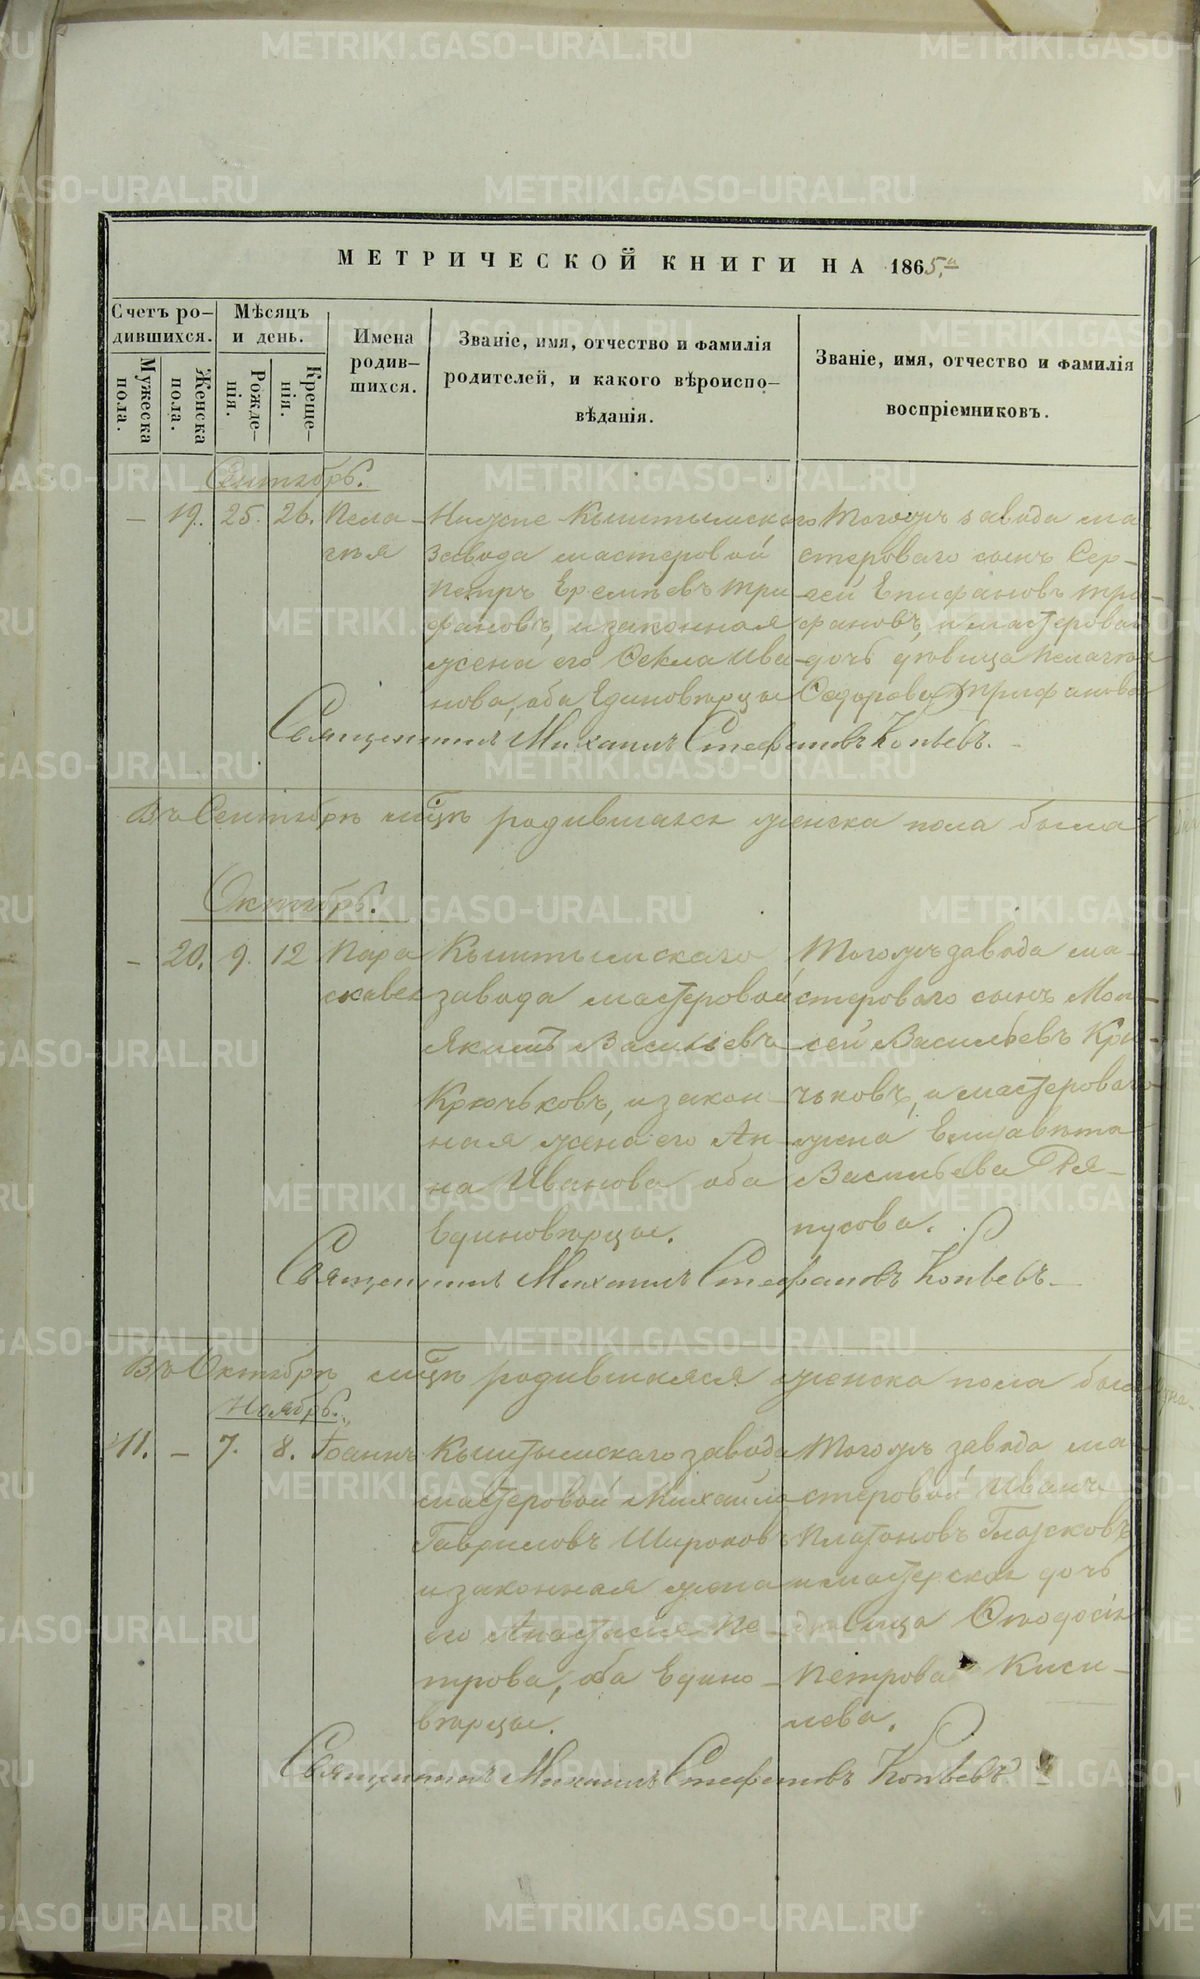 МЕТРИЧЕСКОЙ КНИГИ НА 1865.а
Счетъ ро-
дившихся.
Мѣсяцъ
и день.
Мужеска
пола.
Женска
пола.
Рожде-
нія.
Креще-
нія.
Имена
родив-
шихся.
Званіе, имя, отчество и фамилія
родителей, и какого вѣроиспо-
вѣданія.
Званіе, имя, отчество и фамилія
воспріемниковъ.
Сентябрь.
— 19. 25. 26. Пела-
гѣя
Нижне Кыштымскаго
завода мастеровой
Петръ Еремѣевъ Три-
фановъ, и законная
жена его Фекла Ива-
нова, оба Единовѣрцы
Тогожъ завода ма
стероваго сынъ Сер-
гей Епифановъ Три-
фановъ, и мастероваго
дочь дѣвица Пелагѣя
Федорова Трифанова
Священникъ Михаилъ Стефановъ Копьевъ.
Въ Сентябрѣ мцѣ родившаяся женска пола была
Октябрь.
— 20. 9. 12 Пара
скавея
Кыштымскаго
завода мастеровой
Якимъ Васильевъ
Крючьковъ, и закон-
ная жена его Ан-
на Иванова оба
Единовѣрцы.
Тогожъ завода ма-
стероваго сынъ Мои-
сей Васильевъ Крю-
чьковъ, и мастероваго
жена Елисавѣта
Васильева Ря-
пусова.
Священникъ Михаилъ Стефановъ Копьевъ.
Въ Октябрѣ мцѣ родившаяся женска пола была
Ноябрь.
11. — 7. 8. Іоаннъ
Кыштымскаго завода
мастеровой Михайло
Гавриловъ Широковъ
и законная жена
его Анастасия Пе-
трова, оба Едино-
вѣрцы.
Тогожъ завода ма
стеровой Иванъ
Платоновъ Глазковъ
и мастерская дочь
дѣвица Феодосія
Петрова Кисе-
лева.
Священникъ Михаилъ Стефановъ Копьевъ.
METRIKI.GASO-URAL.RU